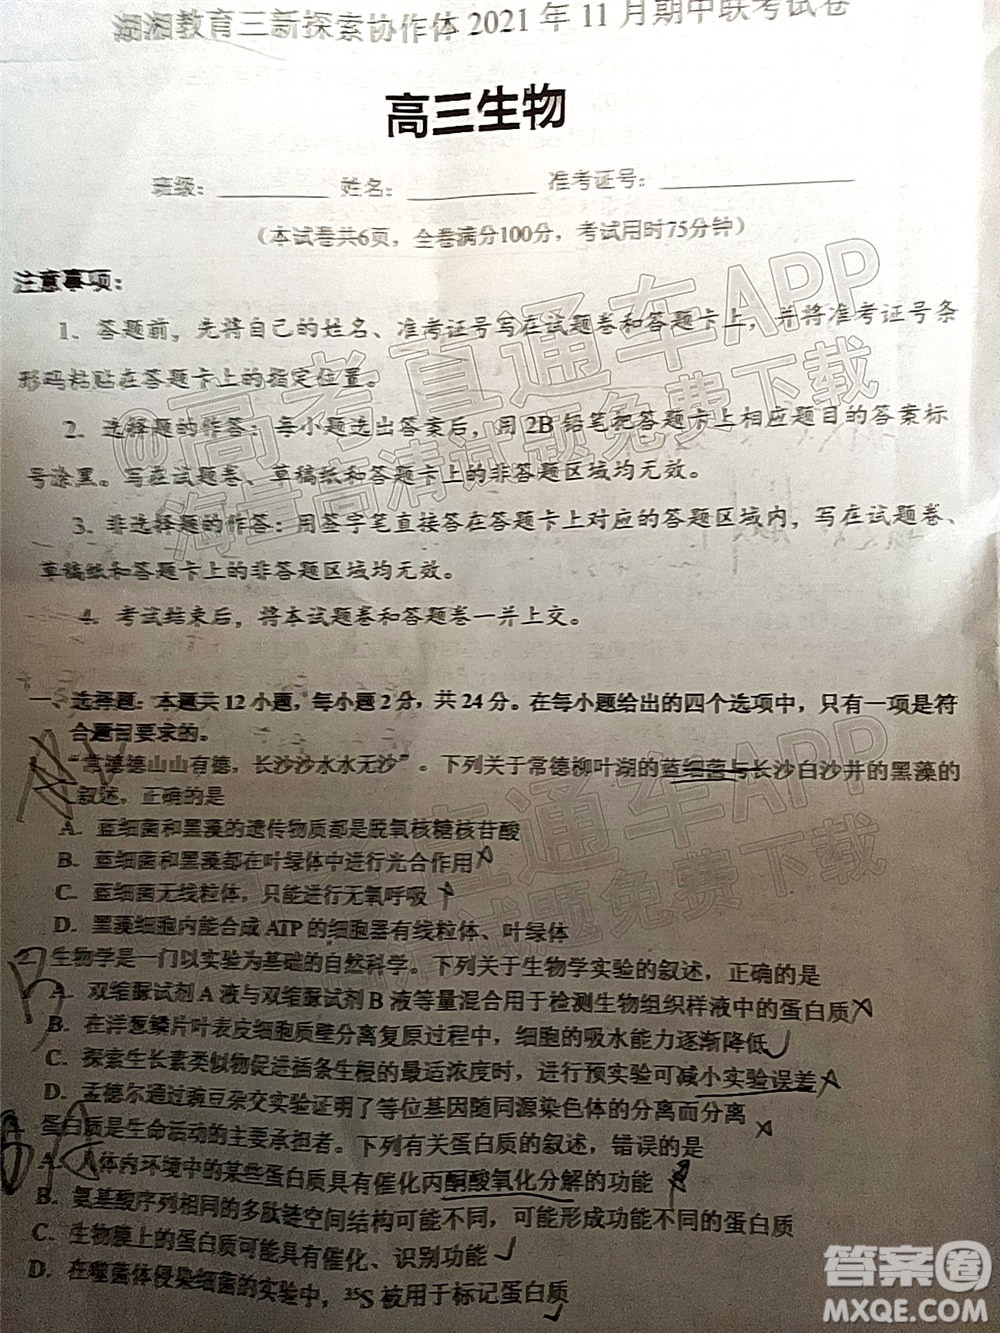 湖湘教育三新探索协作体2021年11月期中联考试卷
高三生物
班级：________ 姓名：________ 准考证号：____________
（本试卷共6页，全卷满分100分，考试用时75分钟）
注意事项：
1、答题前，先将自己的姓名、准考证号写在试题卷和答题卡上，并将准考证号条
形码粘贴在答题卡上的指定位置。
2、选择题的作答：每小题选出答案后，用2B铅笔把答题卡上相应题目的答案标
号涂黑。写在试题卷、草稿纸和答题卡上的非答题区域均无效。
3、非选择题的作答：用签字笔直接答在答题卡上对应的答题区域内，写在试题卷、
草稿纸和答题卡上的非答题区域均无效。
4、考试结束后，将本试题卷和答题卷一并上交。
一、选择题：本题共12小题，每小题2分，共24分。在每小题给出的四个选项中，只有一项是符
合题目要求的。
“常德德山山有德，长沙沙水水无沙”。下列关于常德柳叶湖的蓝细菌与长沙白沙井的黑藻的
叙述，正确的是
A. 蓝细菌和黑藻的遗传物质都是脱氧核糖核苷酸
B. 蓝细菌和黑藻都在叶绿体中进行光合作用
C. 蓝细菌无线粒体，只能进行无氧呼吸
D. 黑藻细胞内能合成ATP的细胞器有线粒体、叶绿体
2. 生物学是一门以实验为基础的自然科学。下列关于生物学实验的叙述，正确的是
A. 双缩脲试剂A液与双缩脲试剂B液等量混合用于检测生物组织样液中的蛋白质
B. 在洋葱鳞片叶表皮细胞质壁分离复原过程中，细胞的吸水能力逐渐降低
C. 探索生长素类似物促进插条生根的最适浓度时，进行预实验可减小实验误差
D. 孟德尔通过豌豆杂交实验证明了等位基因随同源染色体的分离而分离
蛋白质是生命活动的主要承担者。下列有关蛋白质的叙述，错误的是
A. 人体内环境中的某些蛋白质具有催化丙酮酸氧化分解的功能
B. 氨基酸序列相同的多肽链空间结构可能不同，可能形成功能不同的蛋白质
C. 生物膜上的蛋白质可能具有催化、识别功能
D. 在噬菌体侵染细菌的实验中，³⁵S被用于标记蛋白质
@高考直通车APP
海量高清试题免费下载
直通车APP
试题免费下载
答案圈
MXQE.COM